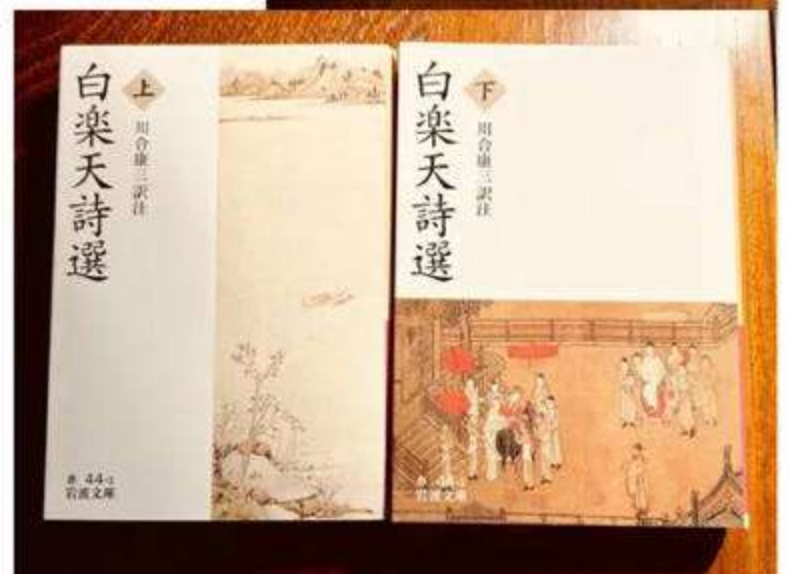 白楽天詩選
上
川合康三訳注
赤 44-1
岩波文庫
白楽天詩選
下
川合康三訳注
赤 44-
岩波文庫